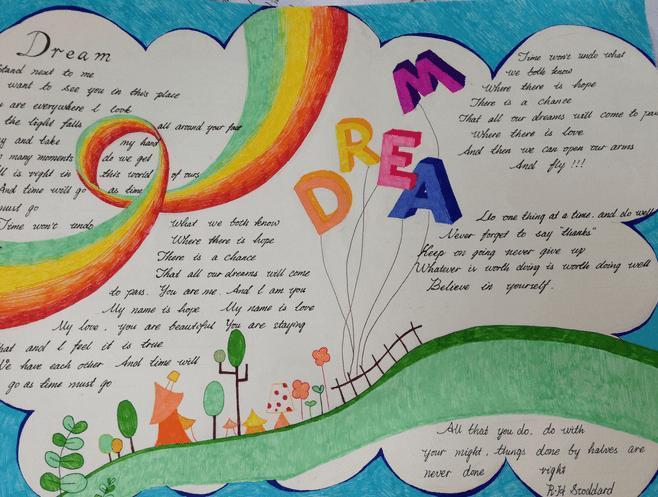 Dream
Stand next to me
want to see you in this place
are everywhere I look
the light falls all around your feet
and take my hand
many moments do we get
is right in this world of ours
And time will go as time
must go
Time won't undo
What we both know
Where there is hope
There is a chance
That all our dreams will come
to pass. You are me. And I am you
My name is hope My name is love
My love, you are beautiful You are staying
that and I feel it is true
We have each other And time will
go as time must go
DREAM
Time won't undo what
we both know
Where there is hope
There is a chance
That all our dreams will come to pass
Where there is love
And then we can open our arms
And fly !!!
Do one thing at a time. and do well
Never forget to say "thanks"
Keep on going never give up
Whatever is worth doing is worth doing well
Believe in yourself.
All that you do. do with
your might, things done by halves are
never done right
R.H Stoddard